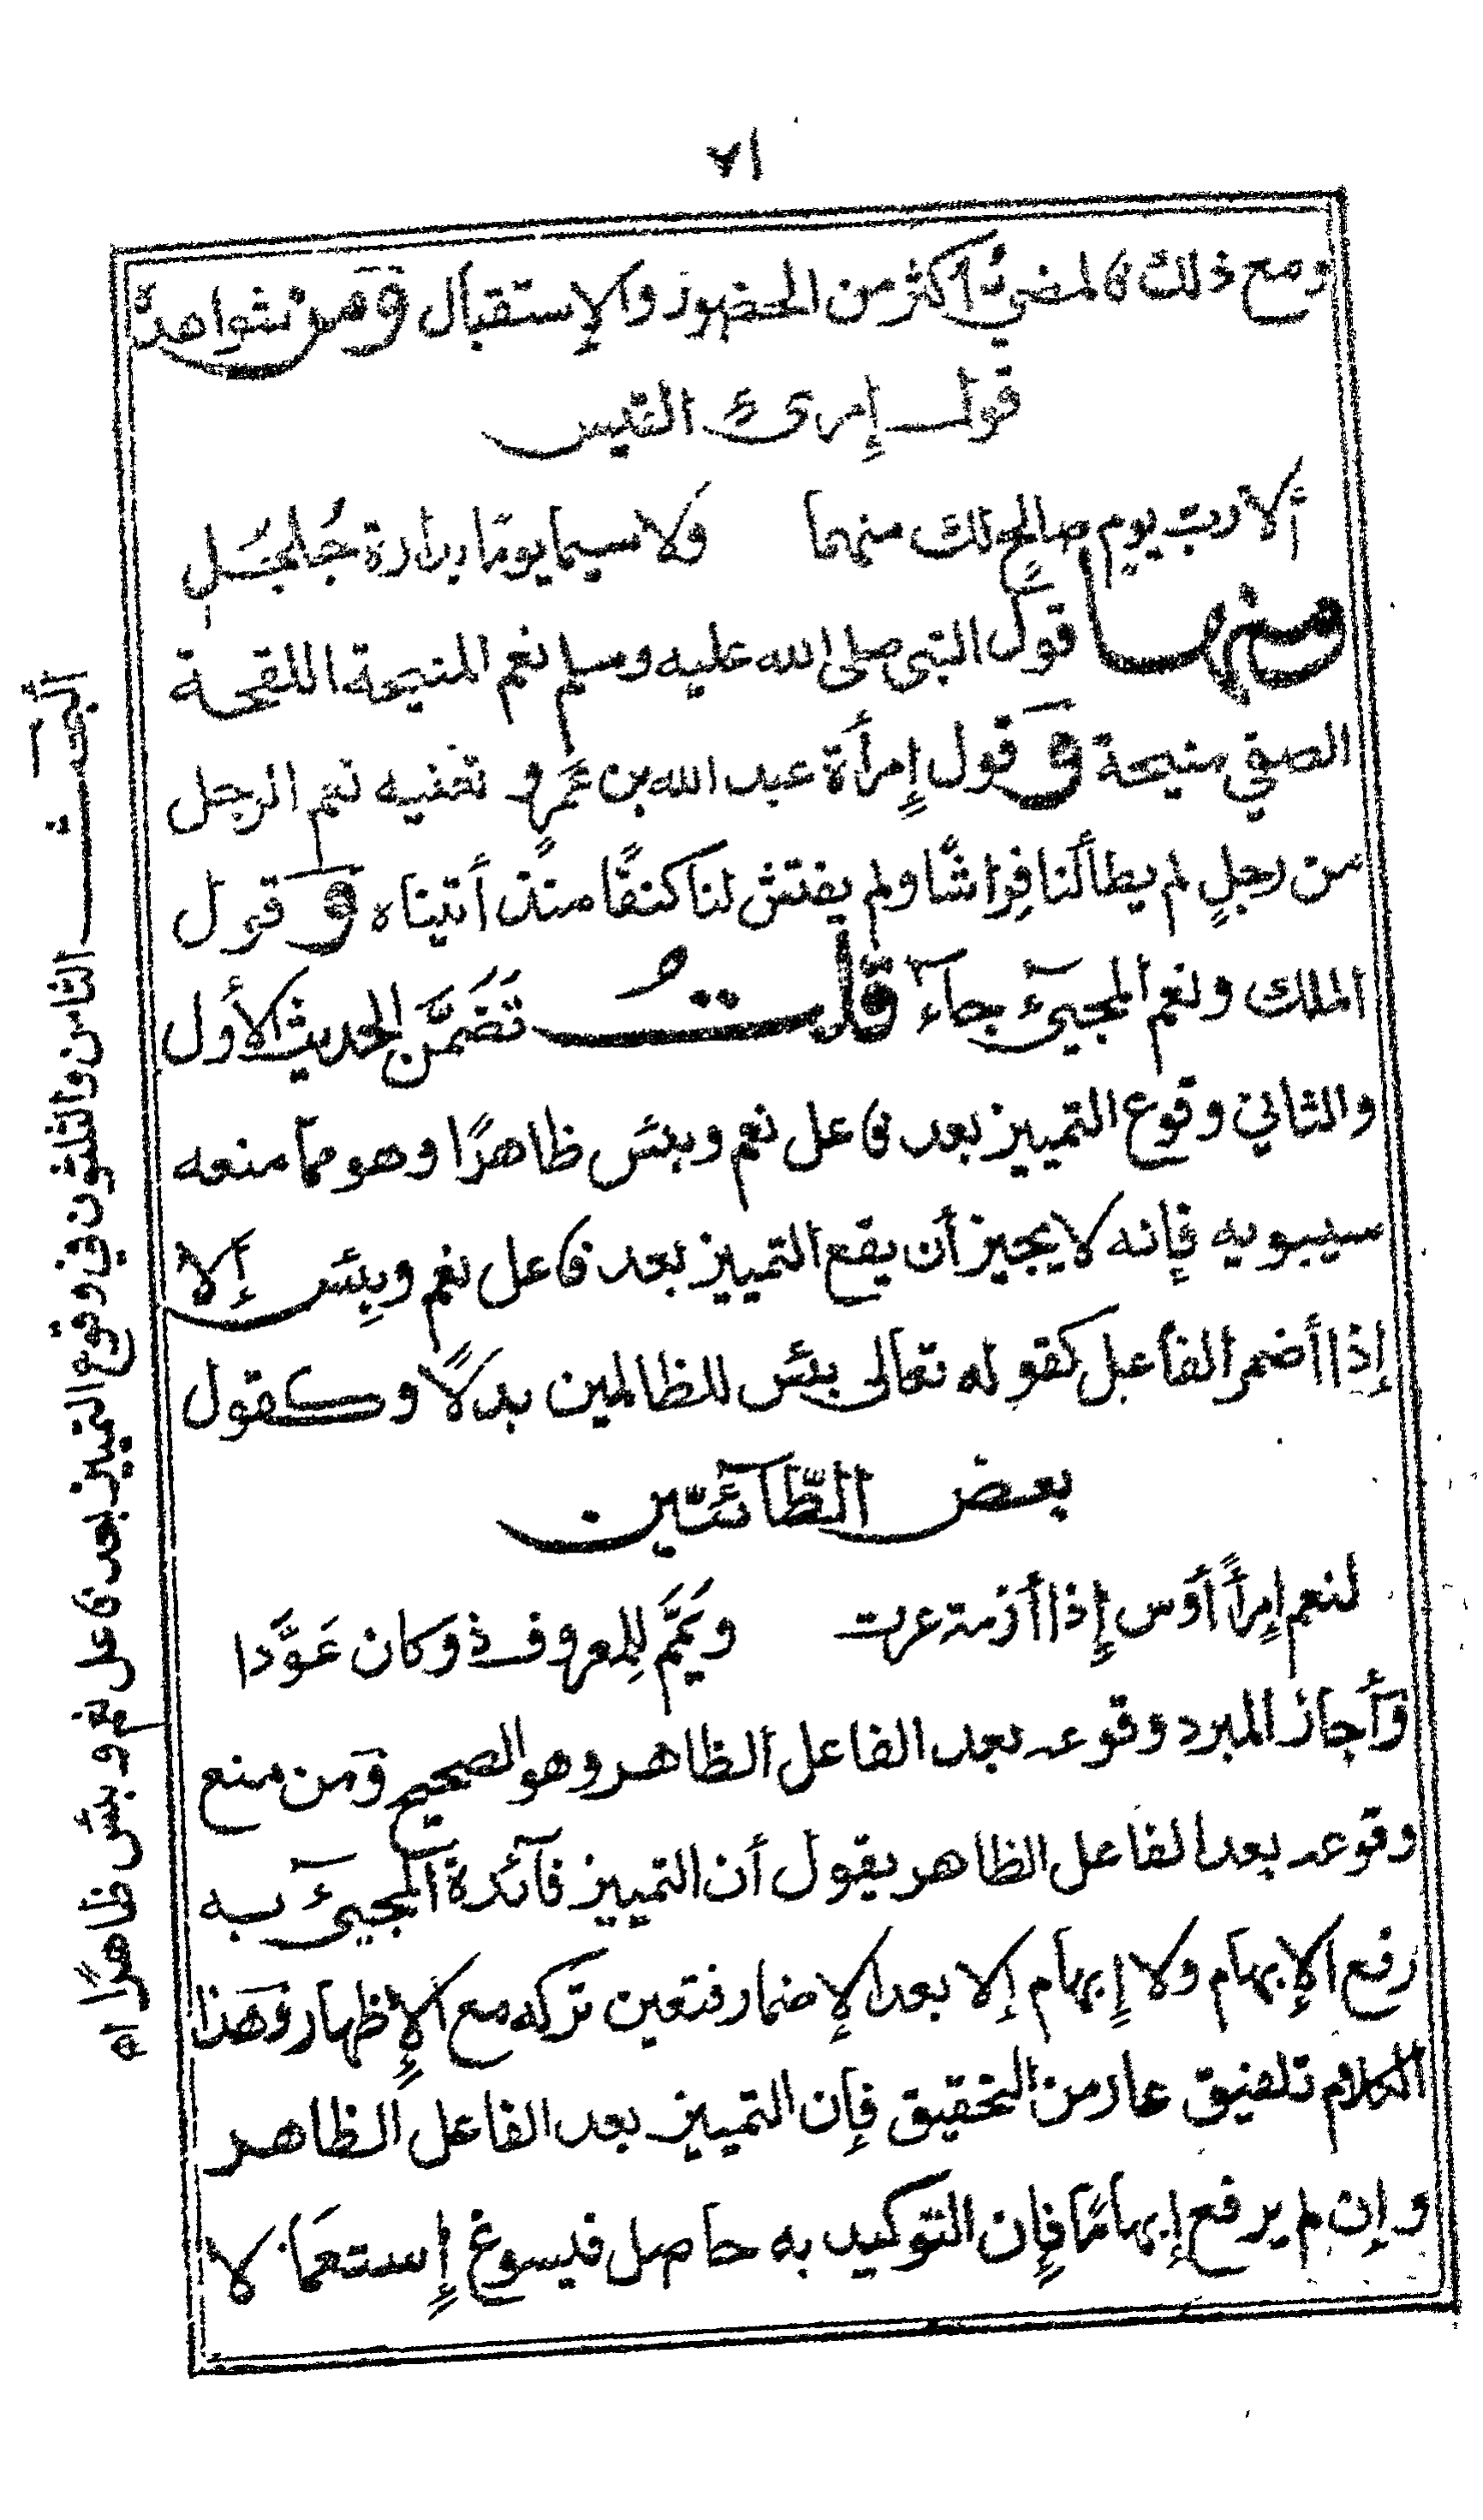 ٧١
ومع ذلك فالمضيُّ أكثر من الحضور والإستقبال ومن شواهدة
قول إمرئ القيس
ألا ربَّ يومٍ صالحٍ لك منهما ولا سيما يومًا بدارة جُلجُلِ
ومنها قول النبى صلى الله عليه وسلم نعم المنيحة اللقحة
الصفي منيحة وقول إمرأة عبد الله بن عَمرٍو تعنيه نعم الرجل
من رجلٍ لم يطألنا فِراشًا ولم يفتش لنا كنفًا منذ أتيناه وقول
الملك ونعم المجيئ جاء قلتُ تَضَمَّنَ الحديث الأول
والثاني وقوع التمييز بعد فاعل نعم وبئس ظاهرًا وهو مما منعه
سيبويه فإنه لا يجيز أن يقع التمييز بعد فاعل نعم وبِئس إلا
إذا أضمر الفاعل كقوله تعالى بئس للظالمين بدلًا وكقول
بعض الطّآئيّين
لنعم إمرأً أوس إذا أزمة عرت ويَمَّمَ لِلمعروف ذو كان عَوَّدا
وأجاز المبرد وقوعه بعد الفاعل الظاهر وهو الصحيح ومن منع
وقوعه بعد الفاعل الظاهر يقول أن التمييز فآئدة المجيئ به
رفع الإبهام ولا إبهام إلا بعد الإضمار فتعين تركه مع الإظهار وهذا
الكلام تلفيق عار من التحقيق فإن التمييز بعد الفاعل الظاهر
وإن لم يرفع إبهامًا فإن التوكيد به حاصل فيسوغ إستعما لا
البحث الثامن والثلثون في وقوع التمييز بعد فاعل نعم وبئس ظاهرًا اه